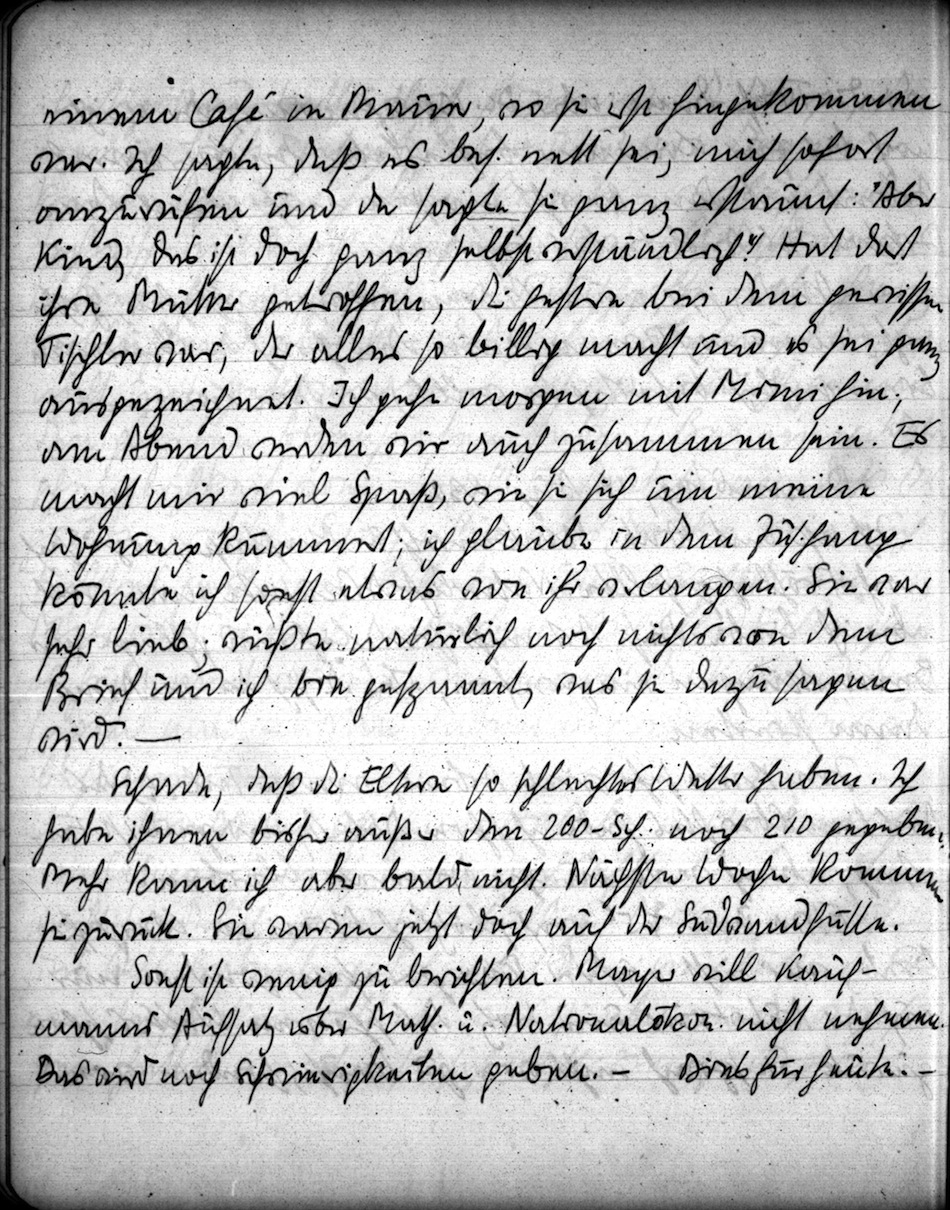 einem Café in Mauer, wo sie erst hingekommen
war. Ich sagte, daß es bes. nett sei, mich sofort
anzurufen und da sagte sie ganz erstaunt: "Aber
Kind, das ist doch ganz selbstverständlich"! Hat dort
ihre Mutter getroffen, die gestern bei dem gewissen
Tischler war, der alles so billig macht und es sei ganz
ausgezeichnet. Ich gehe morgen mit Mimi hin;
am Abend werden wir auch zusammen sein. Es
macht mir viel Spaß, wie sie sich um meine
Wohnung kümmert; ich glaube in dem Zush̄ang
könnte ich sonst etwas von ihr verlangen. Sie war
sehr lieb; wußte natürlich noch nichts von dem
Brief und ich bin gespannt, was sie dazu sagen
wird. —
Schade, daß die Eltern so schlechtes Wetter haben. Ich
habe ihnen bisher außer den 200-Sch. noch 210 gegeben.
Mehr kann ich aber bald nicht. Nächste Woche kommen
sie zurück. Sie waren jetzt doch auf der Südwandhütte.
Sonst ist wenig zu berichten. Mayer will Kauf-
manns Aufsatz über Math. u. Nationalökon. nicht nehmen.
Das wird noch Schwierigkeiten geben. — Dies für heute. —